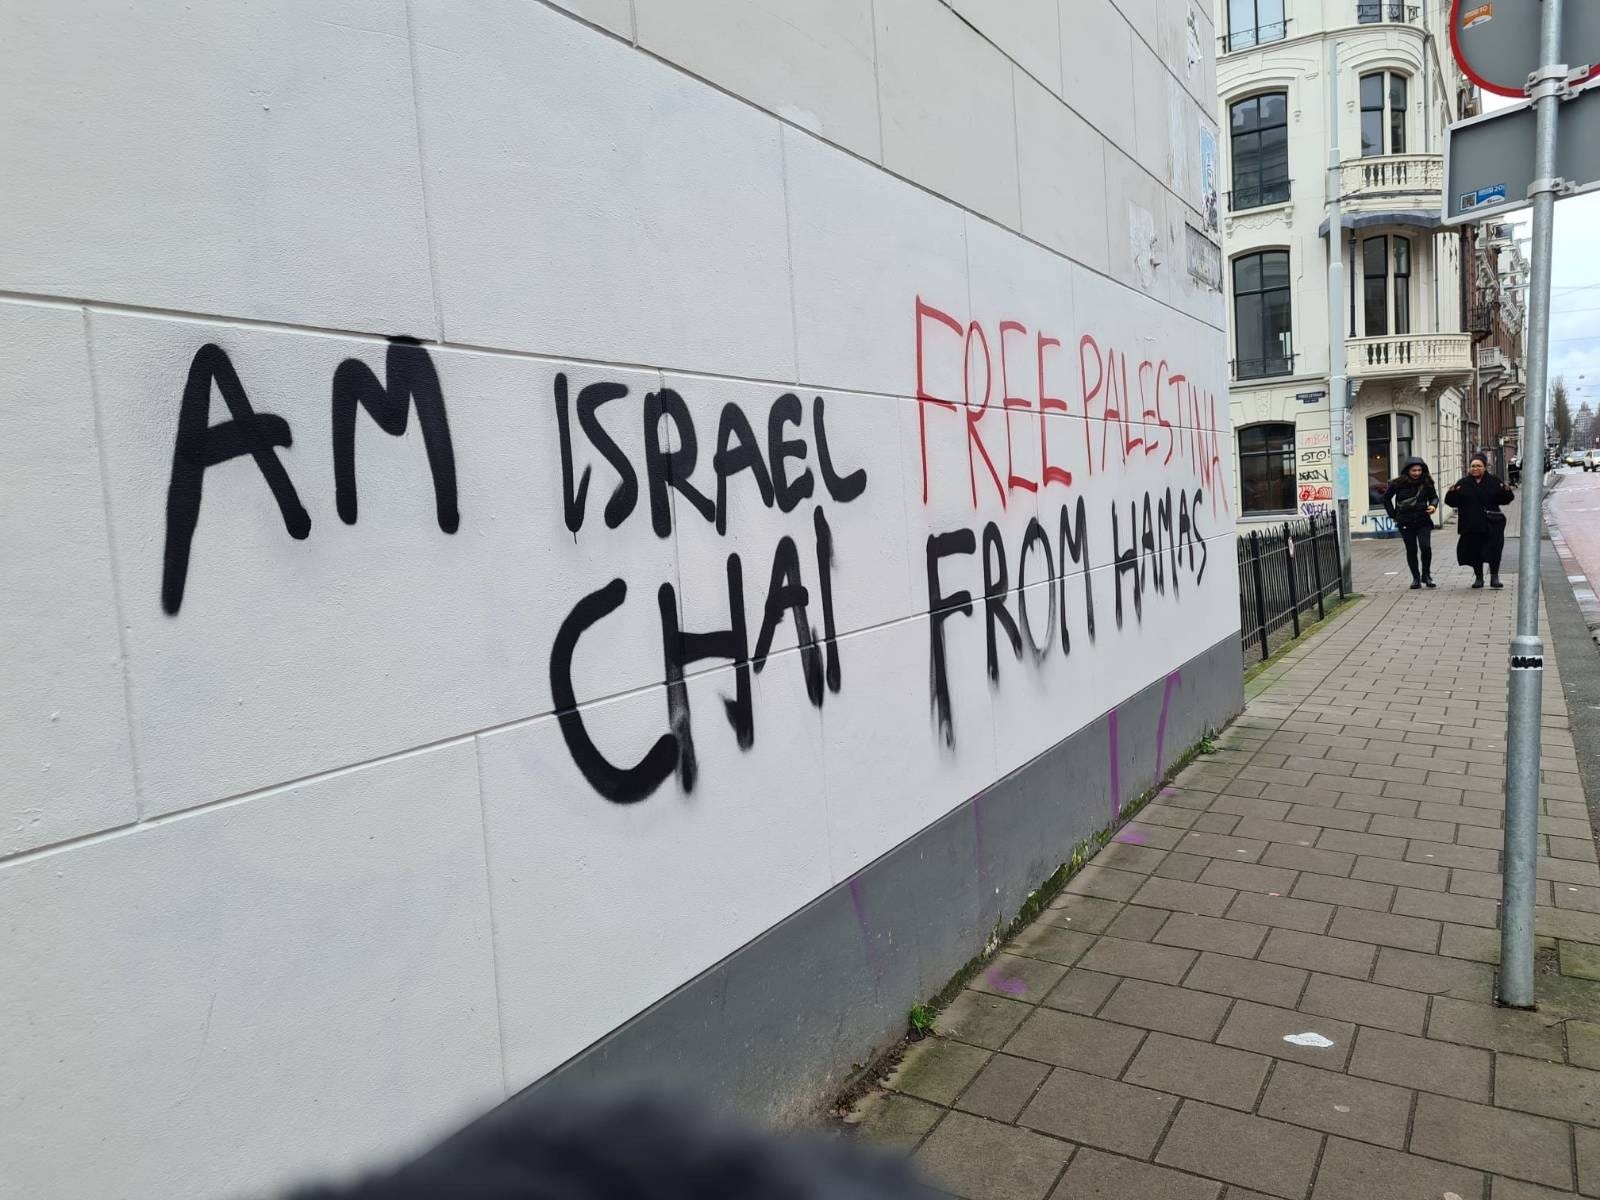 AM ISRAEL
CHAI
FREE PALESTINA
FROM HAMAS